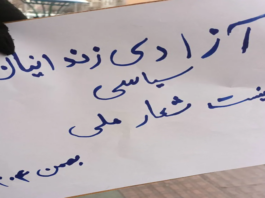 آزادی زندانیان
سیاسی
شعار ملی
بهمن